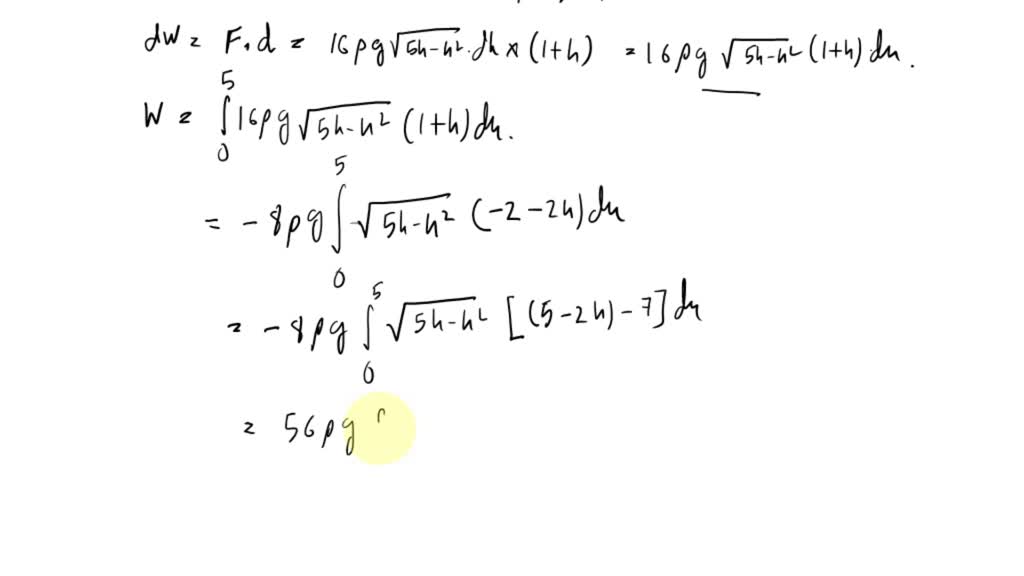 dW = F.d = 16ρg√5h-h².dh × (1+h) = 16ρg √5h-h² (1+h) dh.
W = ∫₀⁵ 16ρg √5h-h² (1+h) dh.
= -8ρg ∫₀⁵ √5h-h² (-2-2h) dh
= -8ρg ∫₀⁵ √5h-h² [(5-2h)-7] dh
= 56ρg